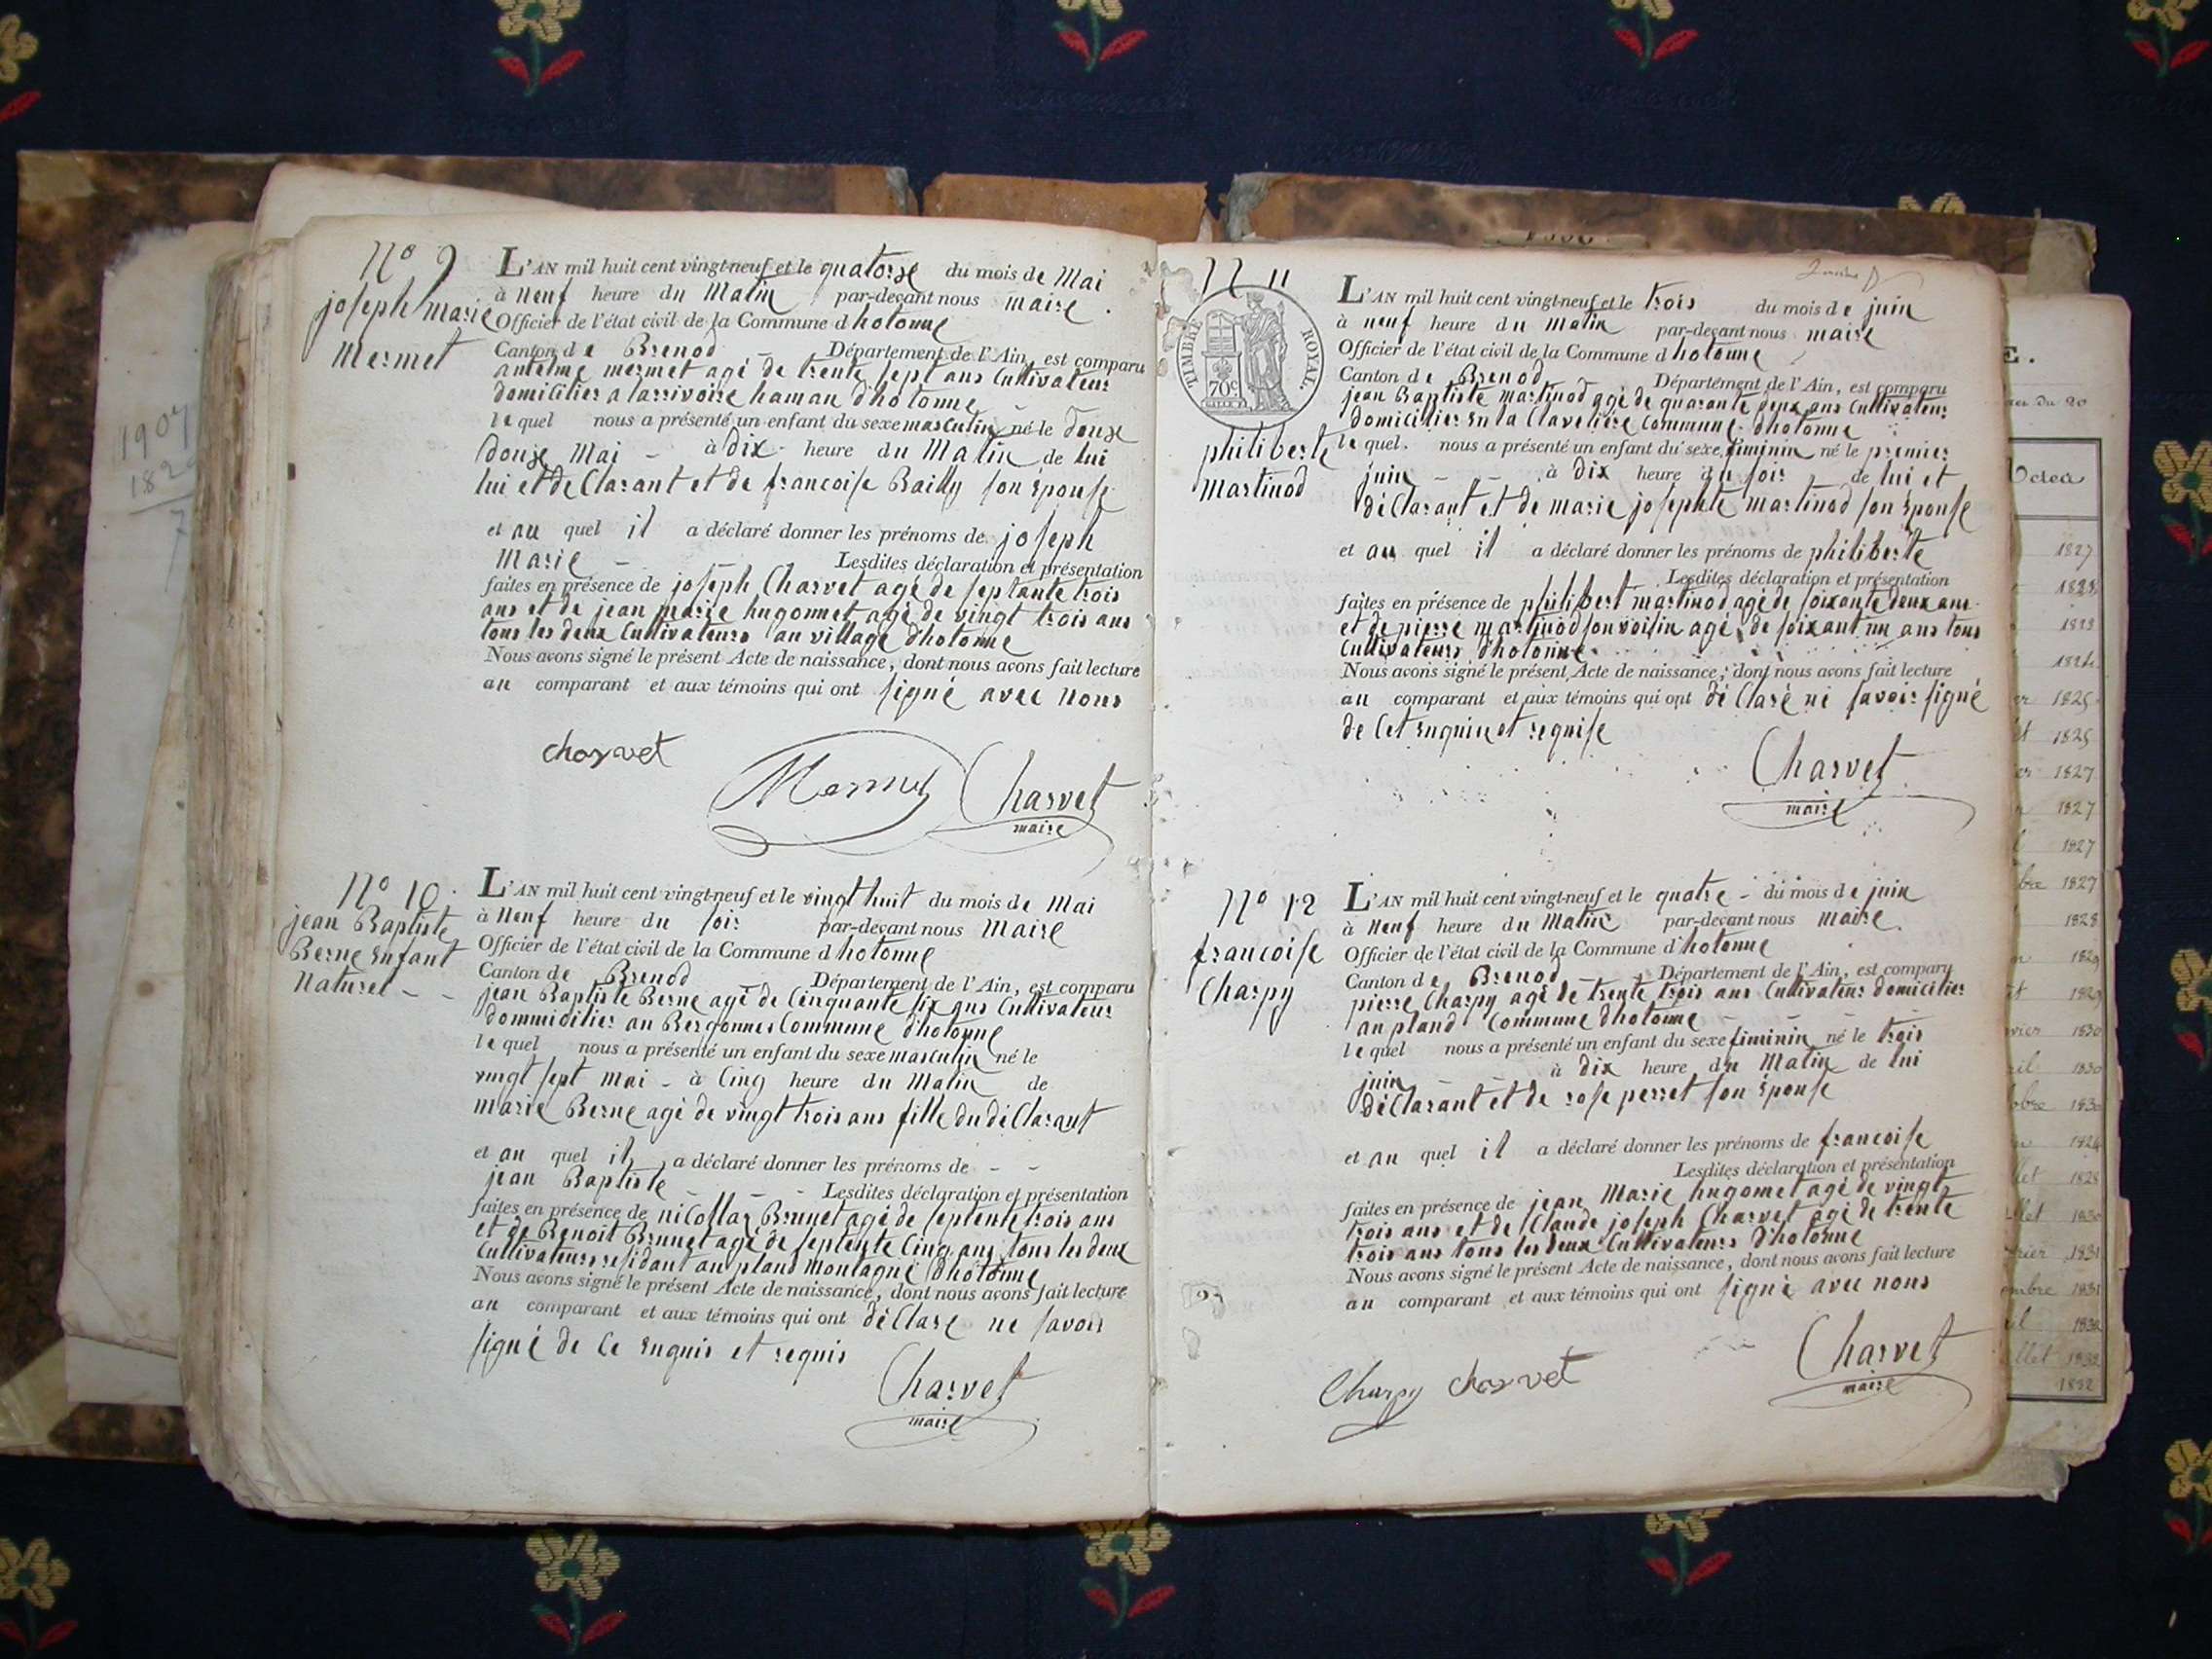 N° 9
joseph marie
Mermet
L'AN mil huit cent vingt-neuf et le quatorze du mois de Mai
à Neuf heure du Matin par-devant nous maire
Officier de l'état civil de la Commune d hotonne
Canton de Brenod Département de l'Ain, est comparu
antelme mermet agé de trente sept ans Cultivateur
domicilier a larrivoire haman d'hotonne
le quel nous a présenté un enfant du sexe masculin né le douze
douze Mai - à Dix heure du Matin de lui
lui et déClarant et de francoise Bailly son Epouse
et au quel il a déclaré donner les prénoms de joseph
Marie - Lesdites déclaration et présentation
faites en présence de joseph Charvet agé de septante trois
ans et de jean marie hugonnet agé de vingt trois ans
tous les deux Cultivateurs au village d'hotonne
Nous avons signé le présent Acte de naissance, dont nous avons fait lecture
au comparant et aux témoins qui ont signé avec nous
charvet
Mermet Charvet
maire
N° 10
jean Baptiste
Berne Enfant
Naturel - -
L'AN mil huit cent vingt-neuf et le vingt huit du mois de Mai
à Neuf heure du soir par-devant nous Maire
Officier de l'état civil de la Commune d hotonne
Canton de Brenod Département de l'Ain, est comparu
jean Baptiste Berne agé de Cinquante six ans Cultivateur
dommicilier au Bergonnes Commune d'hotonne
le quel nous a présenté un enfant du sexe masculin né le
vingt sept mai - à Cinq heure du Matin de
marie Berne agé de vingt trois ans fille du déClarant
et au quel il a déclaré donner les prénoms de - -
jean Baptiste - - - Lesdites déclaration et présentation
faites en présence de niCollas Brunet agé de septente trois ans
et de Benoit Brunet agé de septente Cinq ans tous les deux
Cultivateurs residant au pland Montagne d'hotonne
Nous avons signé le présent Acte de naissance, dont nous avons fait lecture
au comparant et aux témoins qui ont déClare ne savoir
signé de Ce Enquis et requis
Charvet
maire
N 11
TIMBRE ROYAL.
70c
philiberte
Martinod
L'AN mil huit cent vingt-neuf et le trois du mois de juin
à neuf heure du matin par-devant nous maire
Officier de l'état civil de la Commune d hotonne
Canton de Brenod Département de l'Ain, est comparu
jean Baptiste martinod agé de quarante deux ans Cultivateur
domicilier En la Clavelière Commune d'hotonne
le quel. nous a présenté un enfant du sexe fiminin né le premier
juin - - à dix heure du soir de lui et
déClarant et de marie josephte martinod son Epouse
et au quel il a déclaré donner les prénoms de philiberte
Lesdites déclaration et présentation
faites en présence de philibert martinod agé de soixante deux ans
et de pierre martinod son voisin agé de soixant un ans tous
Cultivateurs d'hotonne
Nous avons signé le présent Acte de naissance, dont nous avons fait lecture
au comparant et aux témoins qui ont dé Claré ni savoir signé
de Cet Enquin et requise
Charvet
maire
N° 12
francoise
Charpy
L'AN mil huit cent vingt-neuf et le quatre - du mois de juin
à Neuf heure du Matin par-devant nous maire.
Officier de l'état civil de la Commune d'hotonne
Canton de Brenod Département de l'Ain, est comparu
pierre Charpy agé de trente trois ans Cultivateur domicilier
au pland Commune d'hotonne
le quel nous a présenté un enfant du sexe fiminin né le trois
juin - - à dix heure du Matin de lui
déClarant et de rose perret son Epouse
et au quel il a déclaré donner les prénoms de francoise
Lesdites déclaration et présentation
faites en présence de jean Marie hugonet agé de vingt
trois ans et de Claude joseph Charvet agé de trente
trois ans tous les deux Cultivateurs d'hotonne
Nous avons signé le présent Acte de naissance, dont nous avons fait lecture
au comparant et aux témoins qui ont signé avec nous
Charpy charvet Charvet
maire
1907
1829
7
1827
1828
1825
1825
1827
1827
1827
1827
1828
1829
1829
1830
1830
1830
1828
1830
1831
1831
1832
1832
1832